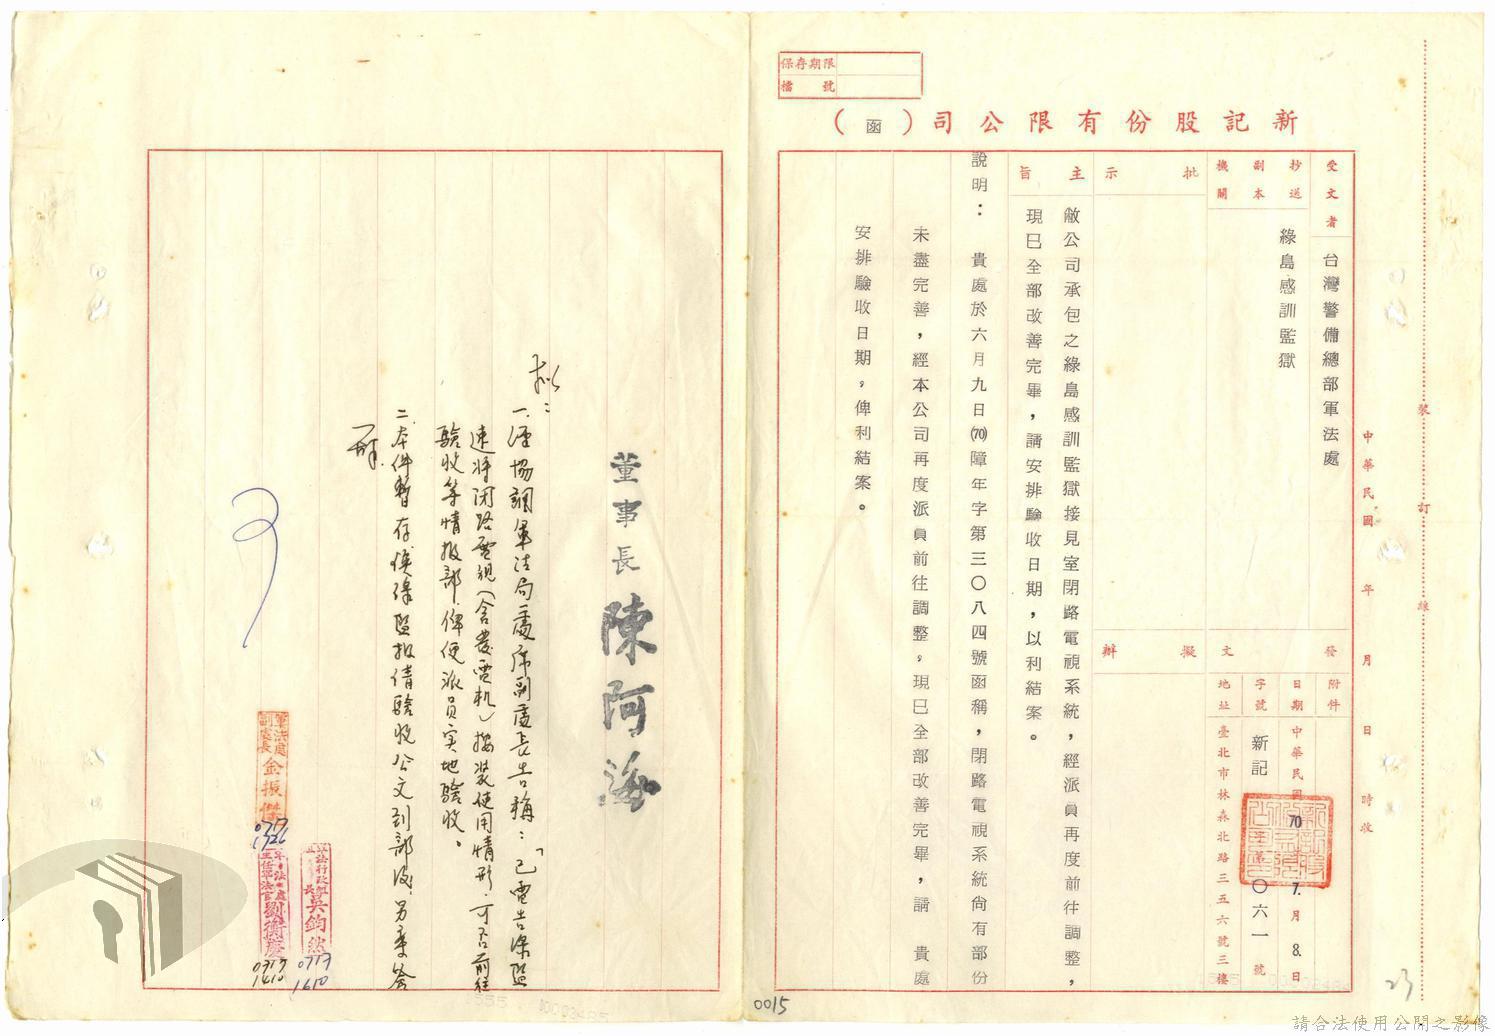 保存期限
檔號
新記股份有限公司（函）
受文者
台灣警備總部軍法處
抄送副本機關
綠島感訓監獄
批示
擬辦
發文
附件
日期
中華民國70年7.月8.日
字號
新記字第〇六一號
地址
臺北市林森北路三五六號三樓
主旨
敝公司承包之綠島感訓監獄接見室閉路電視系統，經派員再度前往調整，
現已全部改善完畢，請安排驗收日期，以利結案。
說明：
貴處於六月九日(70)障年字第三〇八四號函稱，閉路電視系統尚有部份
未盡完善，經本公司再度派員前往調整。現已全部改善完畢，請　貴處
安排驗收日期。俾利結案。
董事長 陳阿海
擬：
一.經協調軍法局二處序副處長告稱：「已電告綠監
速將閉路電視（含發電机）按裝使用情形.可否前往
驗收等情報部.俾便派員实地驗收。
二.本件暫存俟綠監报請驗收公文到部後.另案簽
辦.
軍法處副處長金振傑
0717
1726
軍法處主任軍法官劉衡慶
0717
1610
吳鈞然
0717
1610
中華民國　年　月　日　時收
裝訂線
0015
23
請合法使用公開之影像